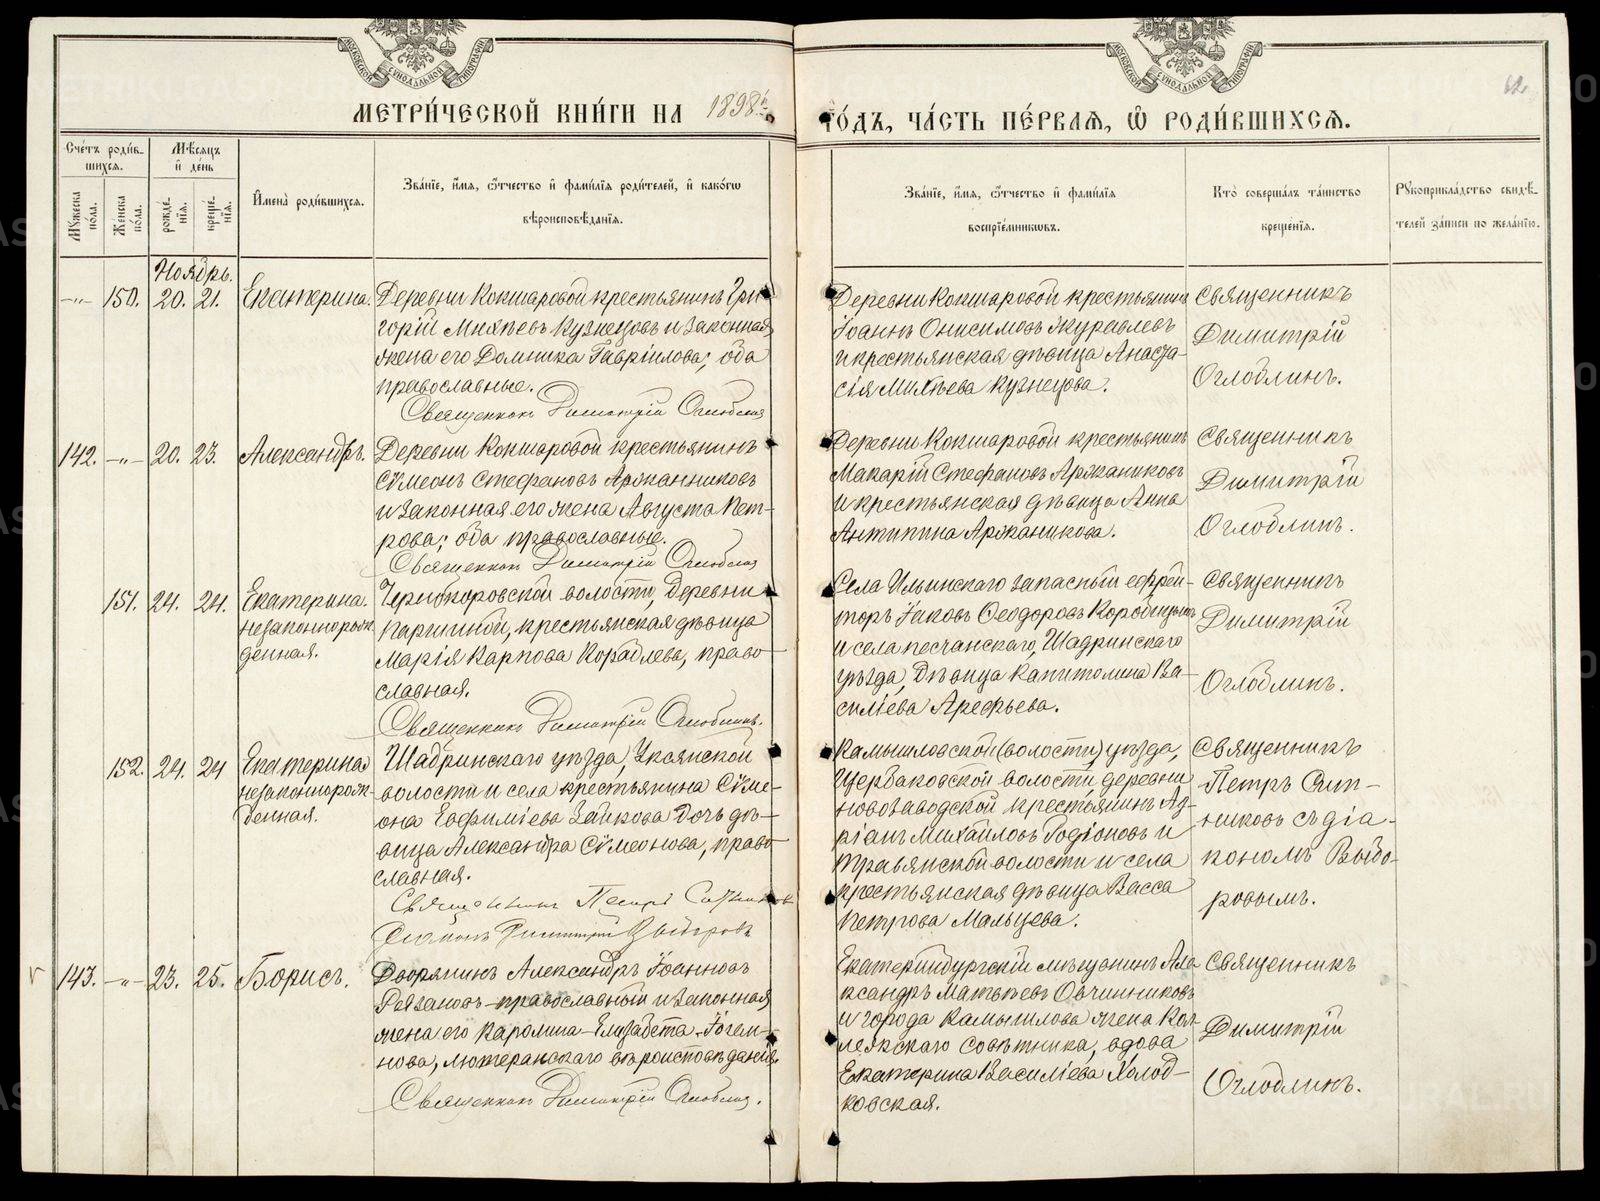 МОСКОВСКОЙ СѴНОДАЛЬНОЙ ТИПОГРАФІИ
МОСКОВСКОЙ СѴНОДАЛЬНОЙ ТИПОГРАФІИ
62
МЕТРИ́ЧЕСКОЙ КНИ́ГИ НА 1898й
ГО́ДЪ, ЧА́СТЬ ПЕ́РВАѦ, Ѡ҆ РОДИ́ВШИХСѦ.
Сче́тъ роди́вшихсѧ.
Мꙋ́жеска по́ла.
Же́нска по́ла.
Мѣ́сѧцъ и҆ де́нь
рожде́нїѧ.
креще́нїѧ.
И҆мена̀ роди́вшихсѧ.
Зва́нїе, и҆́мѧ, ѻ҆́тчество и҆ фами́лїѧ роди́телей, и҆ како́гѡ
вѣроисповѣ́данїѧ.
Зва́нїе, и҆́мѧ, ѻ҆́тчество и҆ фами́лїѧ
воспрїе́мникѡвъ.
Кто̀ соверша́лъ та́инство
креще́нїѧ.
Рꙋкоприкла́дство свидѣ́-
телей за́писи по жела́нїю.
Ноябрь.
-„- 150. 20. 21. Екатерина.
Деревни Кокшаровой крестьянинъ Гри-
горій Михѣевъ Кузнецовъ и законная
жена его Домника Гавріилова; оба
православные.
Священникъ Димитрій Оглоблинъ
Деревни Кокшаровой крестьянинъ
Іоаннъ Онисимовъ Журавлевъ
и крестьянская дѣвица Анаста-
сія Михѣева Кузнецова.
Священникъ
Димитрій
Оглоблинъ.
142. -„- 20. 23. Александръ.
Деревни Кокшаровой крестьянинъ
Сѵмеонъ Стефановъ Аржанниковъ
и законная его жена Августа Пет-
рова; оба православные.
Священникъ Димитрій Оглоблинъ
Деревни Кокшаровой крестьянинъ
Макарій Стефановъ Аржаниковъ
и крестьянская дѣвица Анна
Антипина Аржаникова.
Священникъ
Димитрій
Оглоблинъ.
151. 24. 24. Екатерина.
незаконнорож-
денная.
волости, Деревни
крестьянская дѣвица
Марія Карпова Кораблева, право-
славная.
Священникъ Димитрій Оглоблинъ.
Села Ильинскаго запасный ефрей-
торъ Іаковъ Ѳеодоровъ Коробицынъ
и села песчанскаго, Шадринскаго
уѣзда, Дѣвица Капитолина Ва-
силіева Арефьева.
Священникъ
Димитрій
Оглоблинъ.
152. 24. 24 Екатерина
незаконнорож-
денная.
Шадринскаго уѣзда, Уксянской
волости и села крестьянина Сѵме-
она Евфиміева Зайкова дочь дѣ-
вица Александра Сѵмеонова, право-
славная.
Священникъ Петръ Ситниковъ
Діаконъ Димитрій Выборовъ
Камышловской (волости) уѣзда,
Щербаковской волости, деревни
новозаводской крестьянинъ Ад-
ріанъ Михайловъ Родіоновъ и
Травянской волости и села
крестьянская дѣвица Васса
Петрова Мальцева.
Священникъ
Петръ Сит-
никовъ съ діа-
кономъ Выбо-
ровымъ.
v 143. -„- 23. 25. Борисъ.
Дворянинъ Александръ Іоанновъ
Рязановъ - православный и законная
жена его Каролина-Елизабета-
нова, лютеранскаго вѣроисповѣданія.
Священникъ Димитрій Оглоблинъ.
Екатеринбургскій мѣщанинъ Але-
ксандръ Матвѣевъ Овчинниковъ
и города Камышлова жена Кол-
лежскаго совѣтника, вдова
Екатерина Василіева Холод-
ковская.
Священникъ
Димитрій
Оглоблинъ.